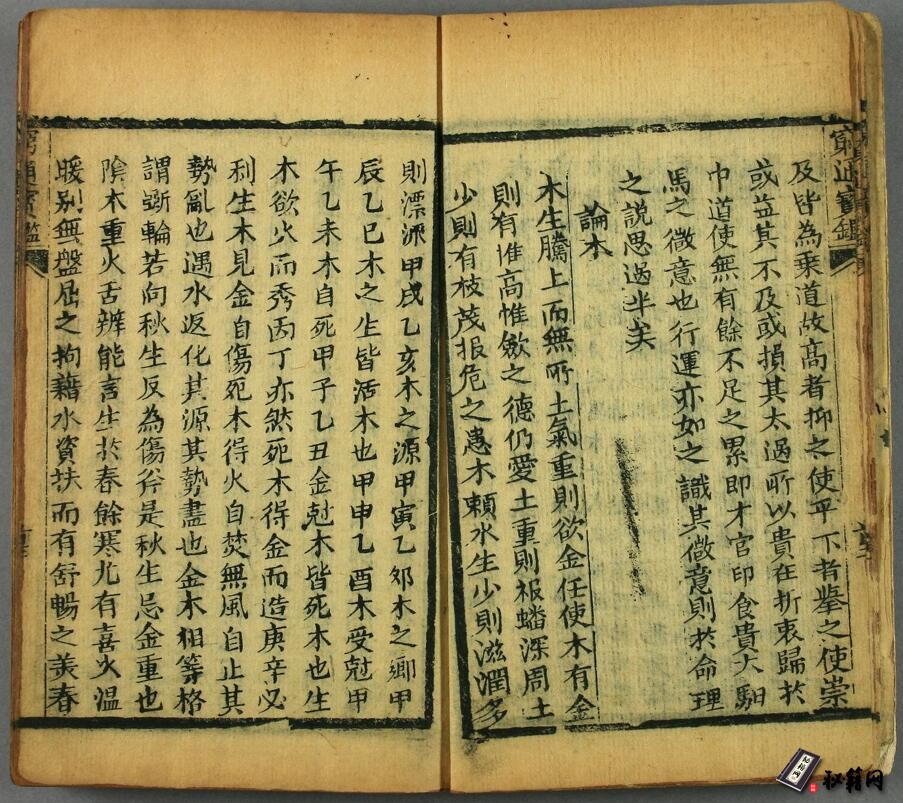 窮通寶鑑
及皆為乗道故高者抑之使平下者舉之使崇
或益其不及或損其太過所以貴在折衷歸於
中道使無有餘不足之累即才官印食貴人駟
馬之微意也行運亦如之識其微意則於命理
之說思過半矣
論木
木生騰上而無所止氣重則欲金任使木有金
則有惟高惟斂之德仍愛土重則根蟠深周土
少則有枝茂根危之患木賴水生少則滋潤多
則漂流甲戌乙亥木之源甲寅乙卯木之鄉甲
辰乙巳木之生皆活木也甲申乙酉木受尅甲
午乙未木自死甲子乙丑金尅木皆死木也生
木欲火而秀丙丁亦然死木得金而造庚辛必
利生木見金自傷死木得火自焚無風自止其
勢亂也遇水返化其源其勢盡也金木相等格
謂斲輪若向秋生反為傷斧是秋生忌金重也
陰木重火舌辨能言生於春餘寒尤有喜火溫
暖別無盤屈之拘藉水資扶而有舒暢之美春
窮通寶鑑
秘籍网
秘籍网